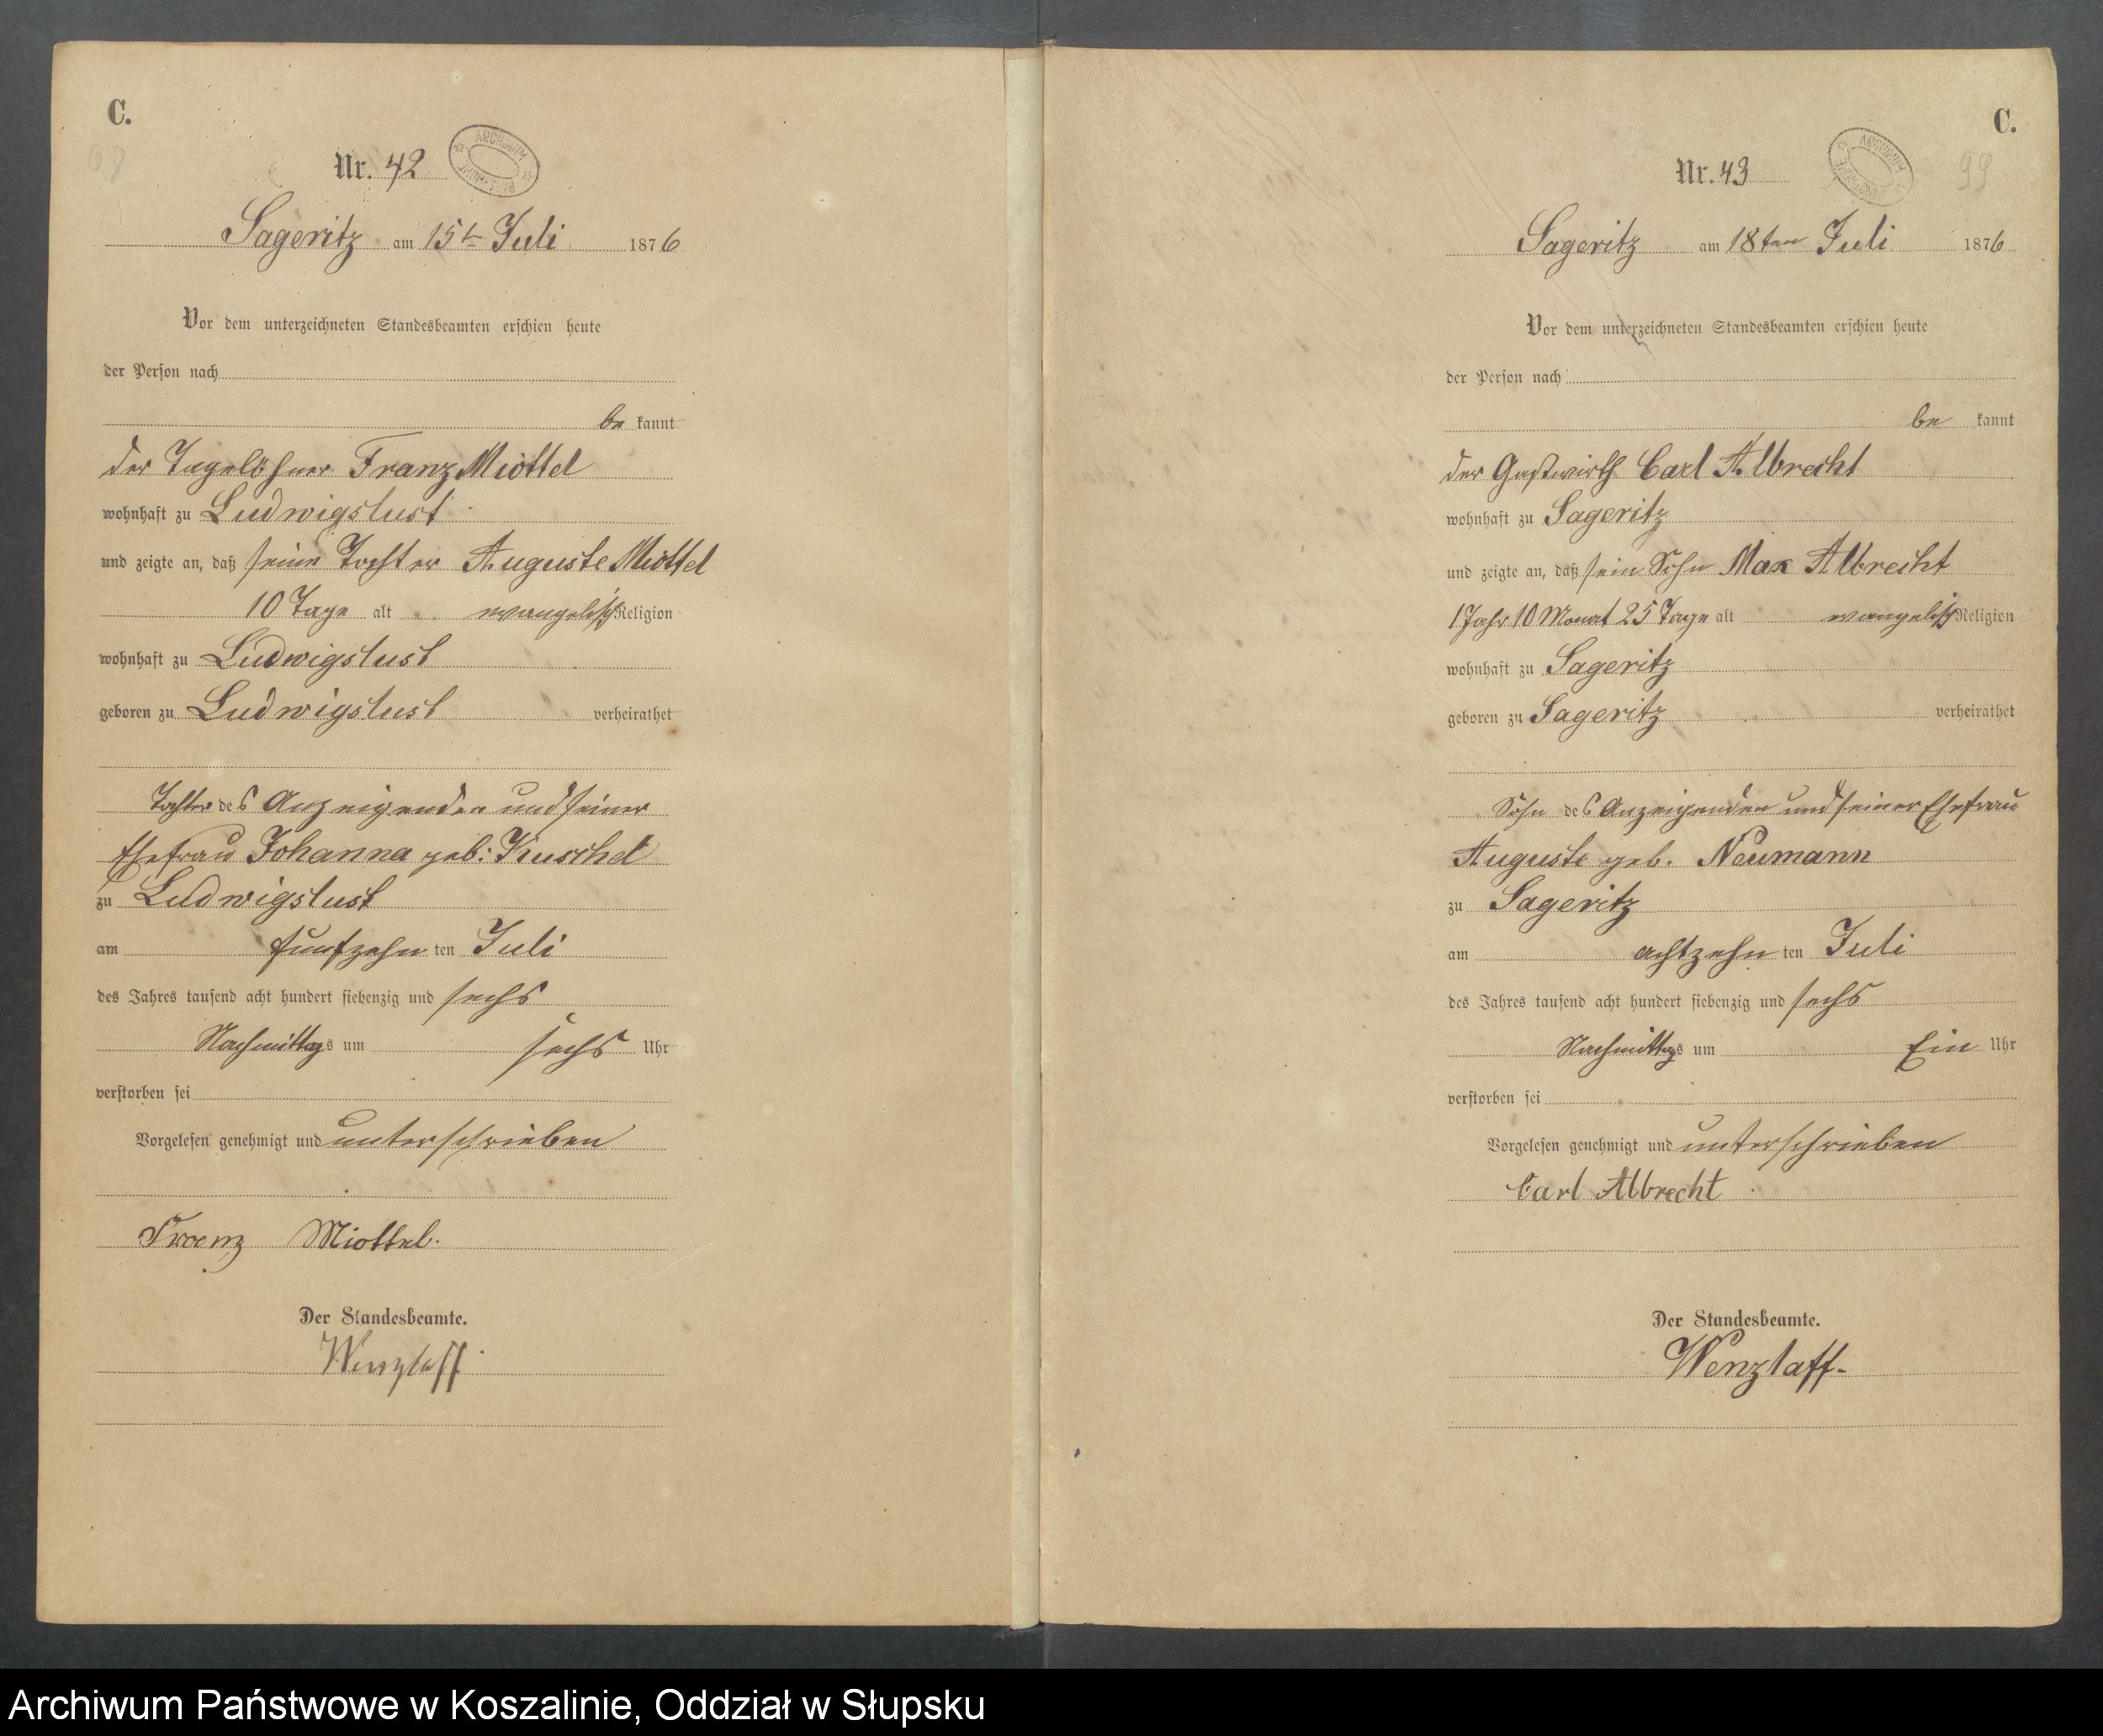 C.
98
Nr. 42
ARCHIWUM
Sageritz am 15t Juli 1876
Vor dem unterzeichneten Standesbeamten erschien heute
der Person nach
be kannt
der Tagelöhner Franz Miottel
wohnhaft zu Ludwigslust
und zeigte an, daß seine Tochter Auguste Miottel
10 Tage alt evangelisch Religion
wohnhaft zu Ludwigslust
geboren zu Ludwigslust verheirathet
Tochter des Anzeigenden und seiner
Ehefrau Johanna geb: Kuschel
zu Ludwigslust
am funfzehn ten Juli
des Jahres tausend acht hundert siebenzig und sechs
Nachmittags um sechs Uhr
verstorben sei
Vorgelesen genehmigt und unterschrieben
Franz Miottel.
Der Standesbeamte.
Wenzlaff
C.
99
Nr. 43
ARCHIWUM
Sageritz am 18ten Juli 1876
Vor dem unterzeichneten Standesbeamten erschien heute
der Person nach
be kannt
der Gastwirth Carl Albrecht
wohnhaft zu Sageritz
und zeigte an, daß sein Sohn Max Albrecht
1 Jahr 10 Monat 25 Tage alt evangelisch Religion
wohnhaft zu Sageritz
geboren zu Sageritz verheirathet
Sohn des Anzeigenden und seiner Ehefrau
Auguste geb. Neumann
zu Sageritz
am achtzehn ten Juli
des Jahres tausend acht hundert siebenzig und sechs
Nachmittags um Ein Uhr
verstorben sei
Vorgelesen genehmigt und unterschrieben
Carl Albrecht
Der Standesbeamte.
Wenzlaff
Archiwum Państwowe w Koszalinie, Oddział w Słupsku